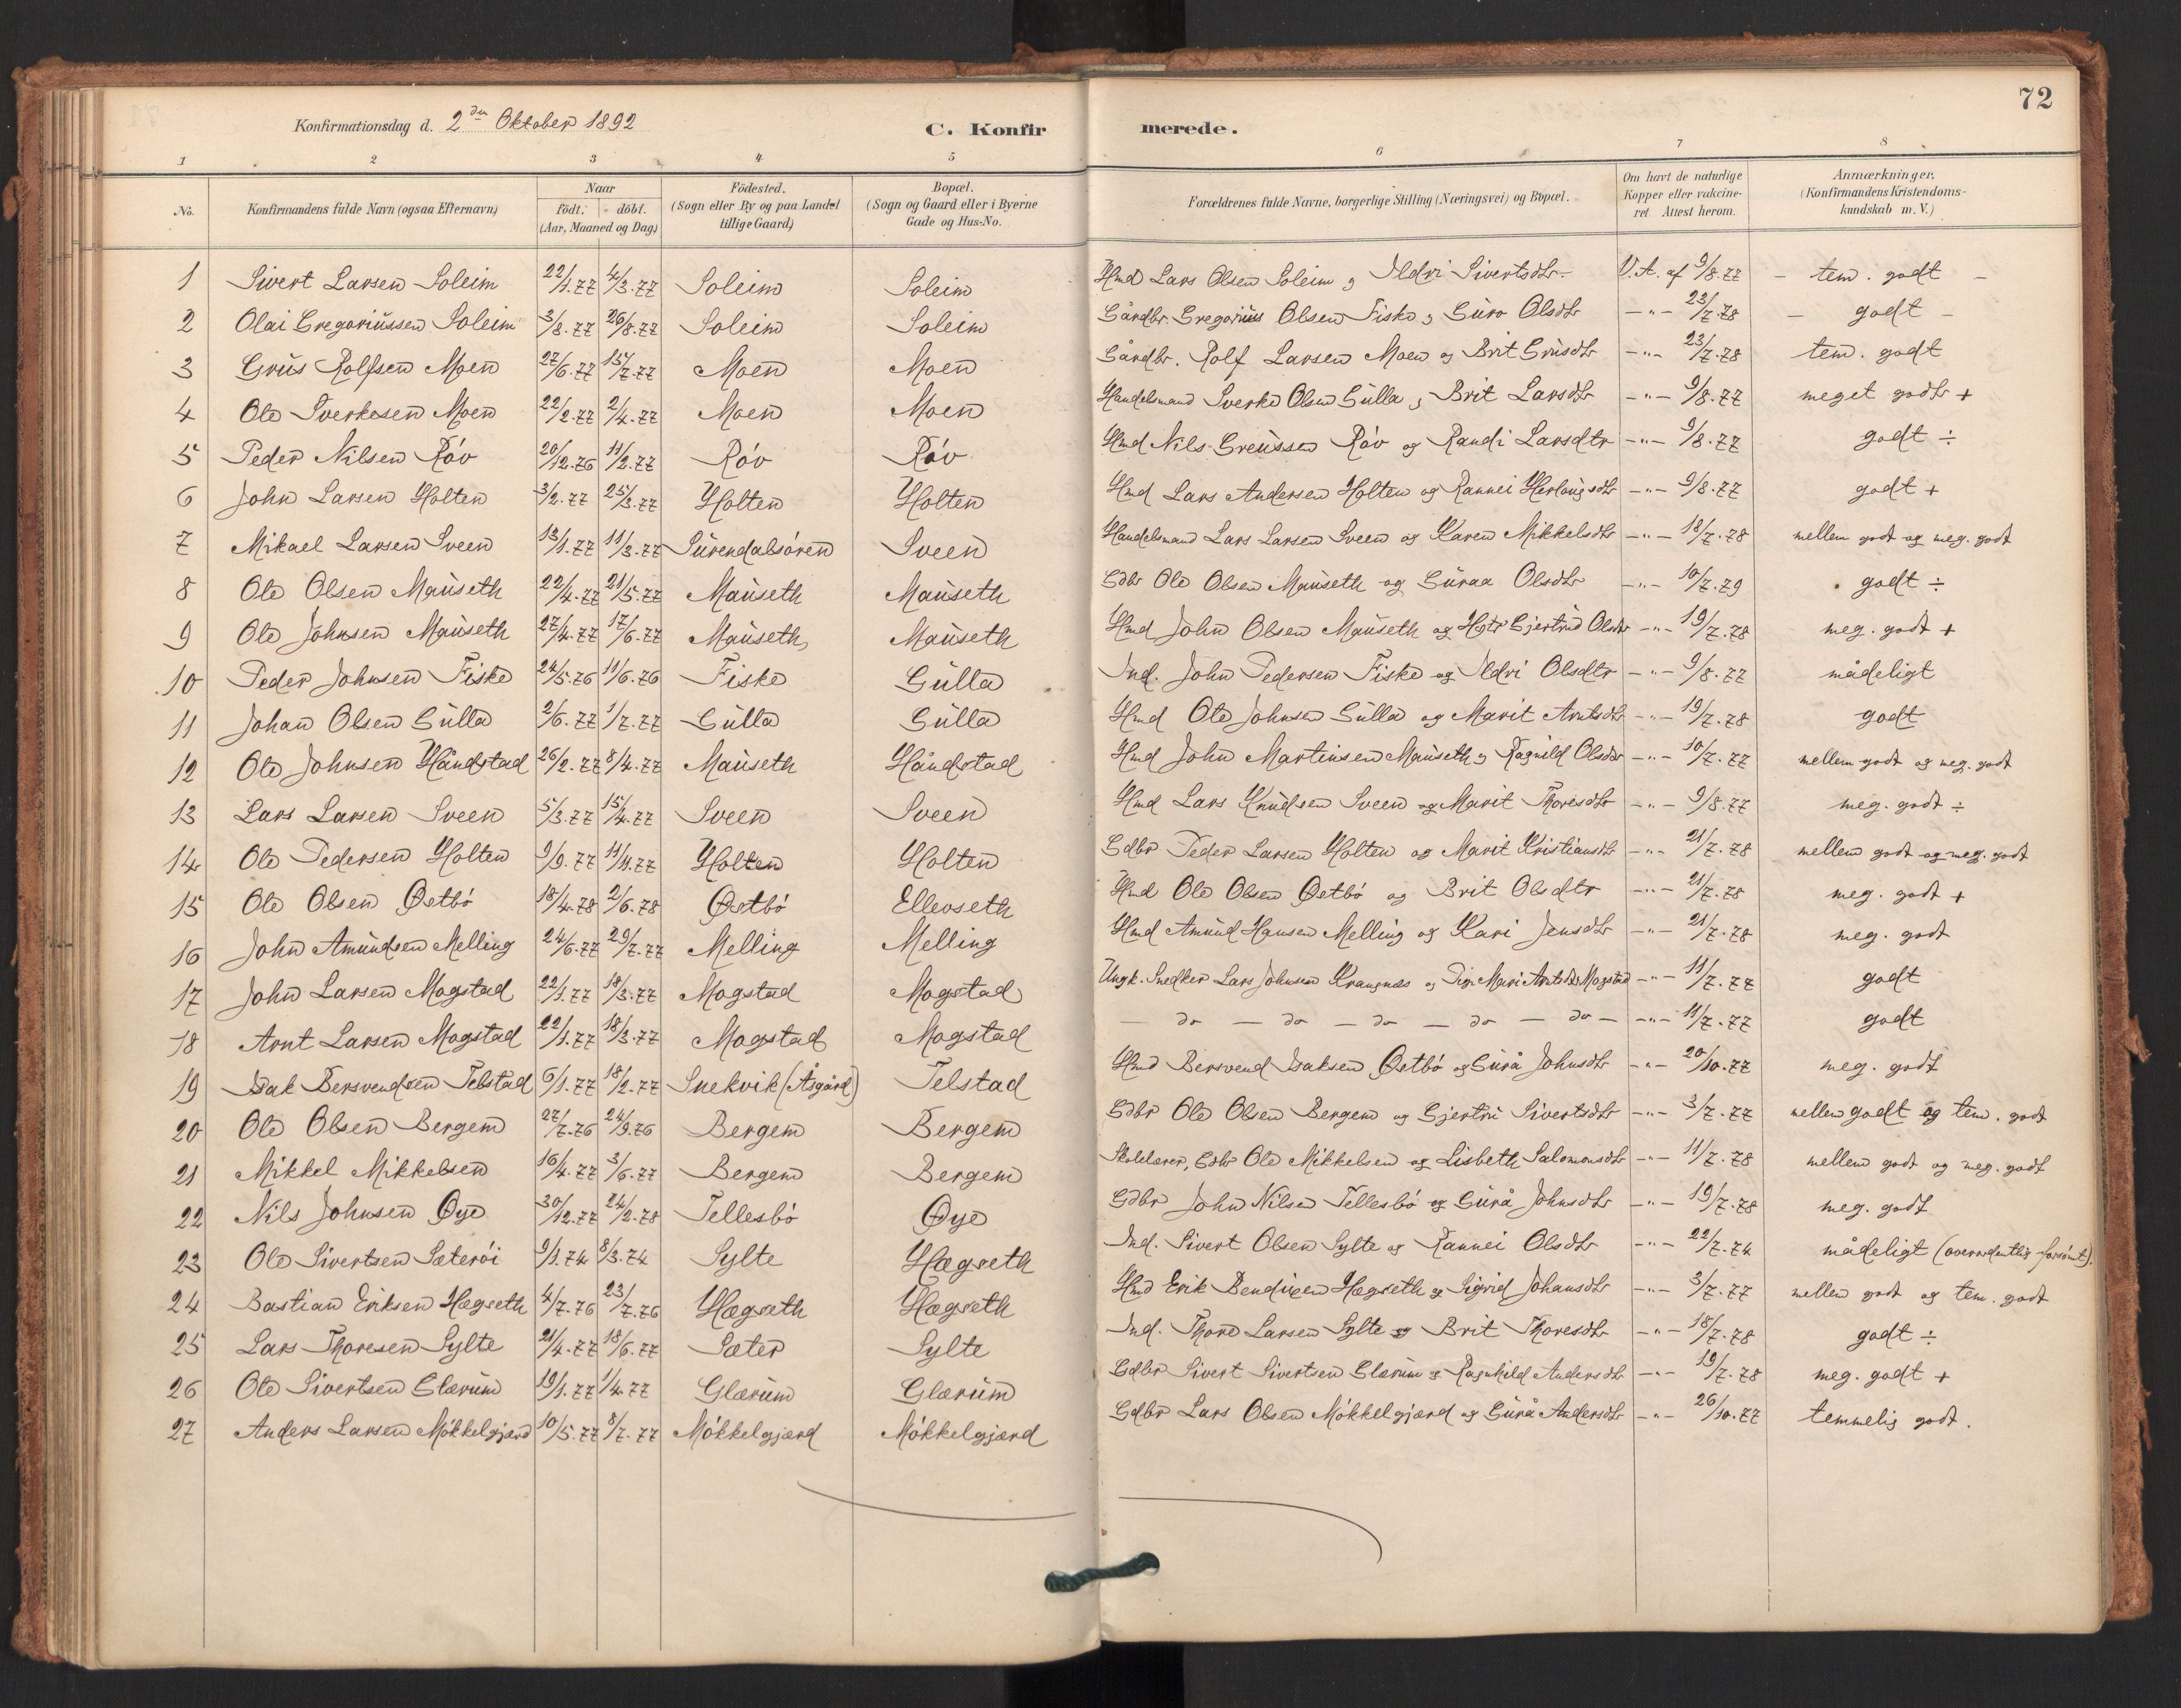 72
Konfirmationsdag d. 2den Oktober 1892 C. Konfirmerede.
1 2 3 4 5 6 7 8
No. Konfirmandens fulde Navn (ogsaa Efternavn) Naar födt. döbt. (Aar, Maaned og Dag) Födested. (Sogn eller By og paa Landet tillige Gaard) Bopæl. (Sogn og Gaard eller i Byerne Gade og Hus-No. Forældrenes fulde Navne, borgerlige Stilling (Næringsvei) og Bopæl. Om havt de naturlige Kopper eller vakcineret. Attest herom. Anmærkninger, (Konfirmandens Kristendomskundskab m. V.)
1 Sivert Larsen Soleim 22/1.77 4/3.77 Soleim Soleim Hmd Lars Olsen Soleim og Ildri Sivertsdtr. V.A. af 9/8.77 - tem. godt -
2 Olai Gregoriussen Soleim 3/8.77 26/8.77 Soleim Soleim Gårdbr. Gregorius Olsen Fiske og Guro Olsdtr -"- 23/7.78 - godt -
3 Gruis Rolfsen Moen 27/6.77 15/7.77 Moen Moen Gårdbr. Rolf Larsen Moen og Brit Gruisdtr -"- 23/7.78 tem. godt
4 Ole Sverkesen Moen 22/2.77 2/4.77 Moen Moen Handelsmand Sverke Olsen Gulla og Brit Larsdtr -"- 9/8.77 meget godt +
5 Peder Nilsen Röv 20/12.76 11/2.77 Röv Röv Hmd Nils Greussen Röv og Randi Larsdtr -"- 9/8.77 godt ÷
6 John Larsen Holten 3/2.77 25/3.77 Holten Holten Hmd Lars Andersen Holten og Rannei Herlougsdtr -"- 9/8.77 godt +
7 Mikael Larsen Sveen 13/1.77 11/3.77 Surendalsören Sveen Handelsmand Lars Larsen Sveen og Karen Mikkelsdtr -"- 18/7.78 mellem godt og meg. godt
8 Ole Olsen Mauseth 22/4.77 21/5.77 Mauseth Mauseth Gdbr Ole Olsen Mauseth og Guraa Olsdtr -"- 10/7.79 godt ÷
9 Ole Johnsen Mauseth 27/4.77 17/6.77 Mauseth Mauseth Hmd John Olsen Mauseth og Hstr Gjertrud Olsdtr -"- 19/7.78 meg. godt +
10 Peder Johnsen Fiske 24/5.76 11/6.76 Fiske Gulla Ind. John Pedersen Fiske og Ildri Olsdtr -"- 9/8.77 mådeligt
11 Johan Olsen Gulla 2/6.77 1/7.77 Gulla Gulla Hmd Ole Johnsen Gulla og Marit Arntsdtr -"- 19/7.78 godt
12 Ole Johnsen Håndstad 26/2.77 8/4.77 Mauseth Håndstad Hmd John Martinsen Mauseth og Ragnild Olsdtr -"- 10/7.77 mellem godt og meg. godt
13 Lars Larsen Sveen 5/3.77 15/4.77 Sveen Sveen Hmd Lars Knudsen Sveen og Marit Thoresdtr -"- 9/8.77 meg. godt ÷
14 Ole Pedersen Holten 9/9.77 11/11.77 Holten Holten Gdbr Peder Larsen Holten og Marit Kristiansdtr -"- 21/7.78 mellem godt og meg. godt
15 Ole Olsen Østbö 18/4.78 2/6.78 Østbö Ellevseth Hmd Ole Olsen Østbö og Brit Olsdtr -"- 21/7.78 meg. godt +
16 John Amundsen Melling 24/6.77 29/7.77 Melling Melling Hmd Amund Hansen Melling og Kari Jensdtr -"- 21/7.78 meg. godt
17 John Larsen Mogstad 22/1.77 18/3.77 Mogstad Mogstad Ungk. Snedker Lars Johnsen Krangnæs og Pige Mari Arntsdtr Mogstad -"- 11/7.77 godt
18 Arnt Larsen Mogstad 22/1.77 18/3.77 Mogstad Mogstad - do - do - do - do - do - -"- 11/7.77 godt
19 Isak Bersvendsen Telstad 6/1.77 18/2.77 Snekvik (Åsgård) Telstad Hmd Bersvend Isaksen Østbö og Gurå Johnsdtr -"- 20/10.77 meg. godt
20 Ole Olsen Bergem 27/7.76 24/9.76 Bergem Bergem Gdbr Ole Olsen Bergem og Gjertru Sivertsdtr -"- 3/7.77 mellem godt og tem. godt
21 Mikkel Mikkelsen 16/4.77 3/6.77 Bergem Bergem Skolelærer, Gdbr Ole Mikkelsen og Lisbeth Salomonsdtr -"- 11/7.78 mellem godt og meg. godt
22 Nils Johnsen Øye 30/12.77 24/2.78 Tellesbö Øye Gdbr John Nilsen Tellesbö og Gurå Johnsdtr -"- 19/7.78 meg. godt
23 Ole Sivertsen Sæteröi 9/1.74 8/3.74 Sylte Hægseth Ind. Sivert Olsen Sylte og Rannei Olsdtr -"- 22/7.74 mådeligt (overordentlig forsömt).
24 Bastian Eriksen Hægseth 4/7.76 23/7.76 Hægseth Hægseth Hmd Erik Bendixen Hægseth og Sigrid Johansdtr -"- 3/7.77 mellem godt og tem. godt
25 Lars Thoresen Sylte 21/4.77 18/6.77 Sæter Sylte Ind. Thore Larsen Sylte og Brit Thoresdtr -"- 18/7.78 godt ÷
26 Ole Sivertsen Glærum 19/1.77 1/4.77 Glærum Glærum Gdbr Sivert Sivertsen Glærum og Ragnhild Andersdtr -"- 19/7.78 meg. godt +
27 Anders Larsen Mökkelgjærd 10/5.77 8/7.77 Mökkelgjærd Mökkelgjærd Gdbr Lars Olsen Mökkelgjærd og Gurå Andersdtr -"- 26/10.77 temmelig godt.